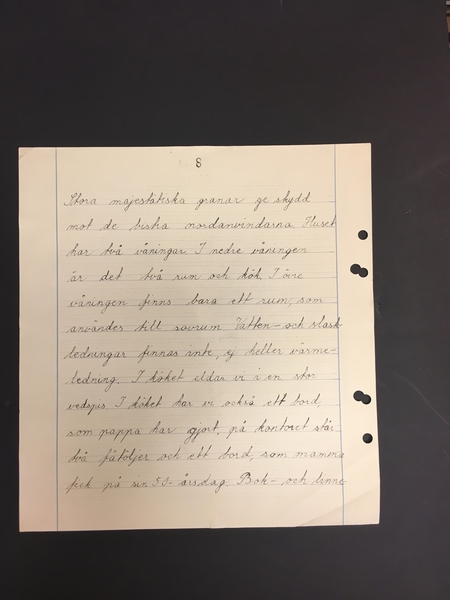 8
Stora majestätiska granar ge skydd
mot de biska nordanvindarna. Huset
har två våningar. I nedre våningen
är det två rum och kök. I övre
våningen finns bara ett rum, som
användes till sovrum. Vatten- och slask-
ledningar finnas inte, ej heller värme-
ledning. I köket eldar vi i en stor
vedspis. I köket har vi också ett bord,
som pappa har gjort, på kontoret står
två fåtöljer och ett bord, som mamma
fick på sin 50-årsdag. Bok- och linne-